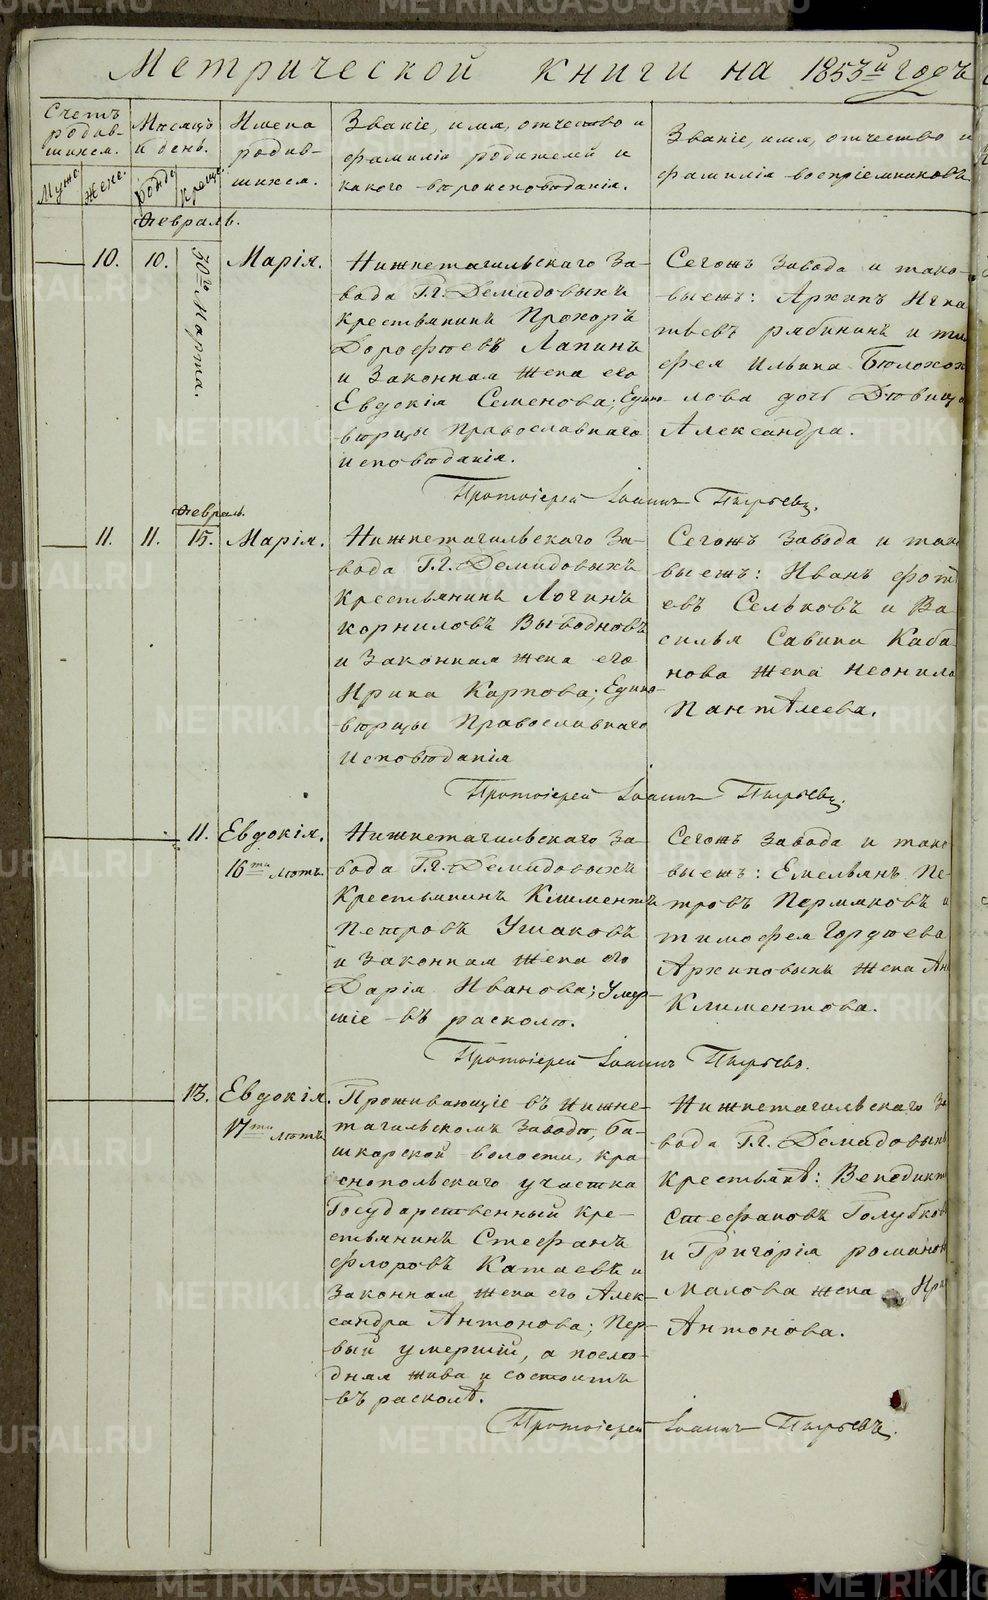 Метрической книги на 1853й годъ
Счетъ родив-
шихся.
Муже
Жене.
Мѣсяцъ
и день.
рожде
креще
Имена
родив-
шихся.
Званіе, имя, отчество и
фамилія родителей и
какого вѣроисповѣданія.
Званіе, имя, отчество и
фамилія воспріемниковъ
Февраль.
10.
10.
30го Марта.
Марія.
Нижнетагильскаго За-
вода Гг. Демидовыхъ
крестьянинъ Прохоръ
Дорофѣевъ Лапинъ
и Законная жена его
Евдокія Семенова; Един-
вѣрцы Православнаго
исповѣданія.
Сегожъ Завода и тако-
выежъ: Архипъ Игна
тьевъ рябининъ и ти
фея Ильина Бѣлохох
лова дочь Дѣвица
Александра.
Протоіерей Іоаннъ Пырьевъ.
11.
11.
Февраль.
15.
Марія.
Нижнетагильскаго За-
вода Г.г. Демидовыхъ
крестьянинъ Логинъ
корниловъ Выводновъ
и Законная жена его
Ирина Карпова; Едино-
вѣрцы Православнаго
Исповѣданія
Сегожъ Завода и так
выежъ: Иванъ фот
евъ Сельковъ и Ва
силья Савина Каба
нова жена Неонила
Пантѣлеева.
Протоіерей Іоаннъ Пырьевъ.
11.
Евдокія.
16ти лѣтъ.
Нижнетагильскаго За-
вода Г.г. Демидовыхъ
Крестьянинъ Климентъ
Петровъ Ушаковъ
и Законная жена его
Дарія Иванова; Умер-
шіе въ расколѣ.
Сегожъ Завода и тако
выежъ: Емельянъ Пе-
тровъ Пермяковъ и
тимофея Гордѣева
Архиповыхъ жена Ан
Климентова.
Протоіерей Іоаннъ Пырьевъ.
13.
Евдокія.
17ти лѣтъ
Проживающіе въ Нижне-
тагильскомъ Заводѣ, Ба-
шкарской волости, кра
снопольскаго участка
Государственный кре-
стьянинъ Стефанъ
флоровъ Катаевъ и
Законная жена его Алек-
сандра Антонова; Пер-
вый умершій, а послѣ-
дняя жива и состоитъ
въ расколѣ.
Нижнетагильскаго За
вода Г.г. Демидовыхъ
крестьянѣ: Венедиктъ
Стефановъ Голубков
и Григорія романов
Малова жена Ири
Антонова.
Протоіерей Іоаннъ Пырьевъ.
METRIKI.GASO-URAL.RU